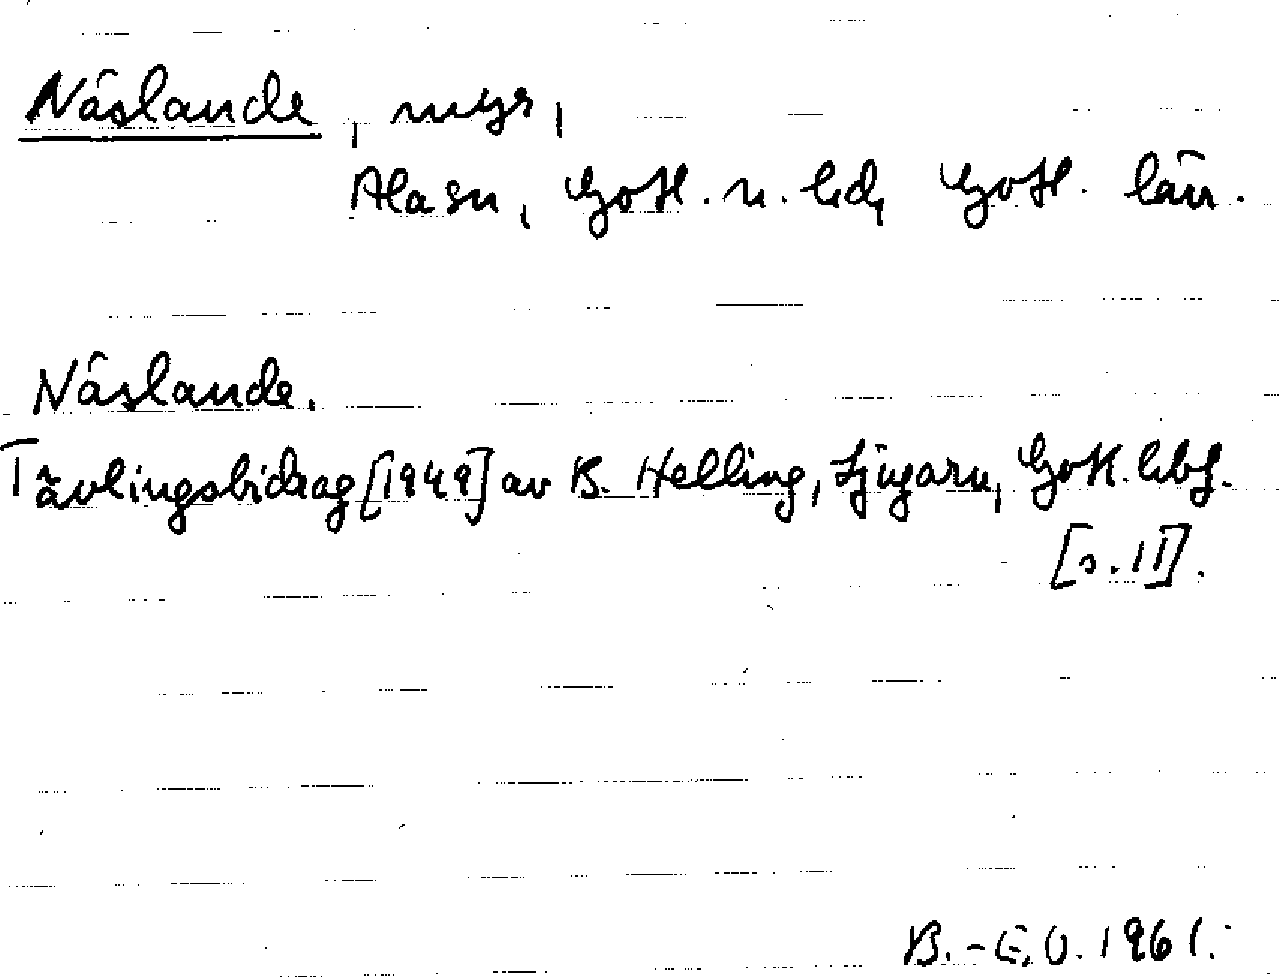 Näslande, myr,
Ala sn, Gotl. n. hd, Gotl. län.
Näslande.
Tävlingsbidrag [1949] av B. Helling, Ljugarn, Gotl. hbf.
[s. 11].
B.-E.O. 1961.